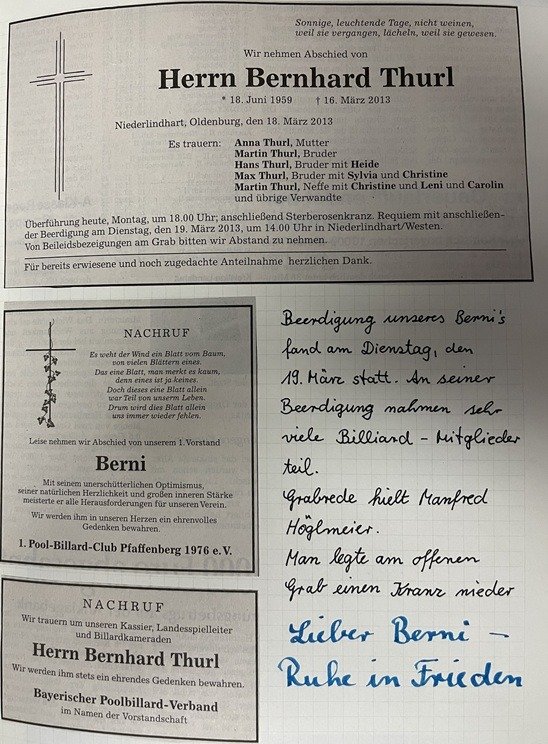 Sonnige, leuchtende Tage, nicht weinen,
weil sie vergangen, lächeln, weil sie gewesen.
Wir nehmen Abschied von
Herrn Bernhard Thurl
* 18. Juni 1959 † 16. März 2013
Niederlindhart, Oldenburg, den 18. März 2013
Es trauern: Anna Thurl, Mutter
Martin Thurl, Bruder
Hans Thurl, Bruder mit Heide
Max Thurl, Bruder mit Sylvia und Christine
Martin Thurl, Neffe mit Christine und Leni und Carolin
und übrige Verwandte
Überführung heute, Montag, um 18.00 Uhr; anschließend Sterberosenkranz. Requiem mit anschließen-
der Beerdigung am Dienstag, den 19. März 2013, um 14.00 Uhr in Niederlindhart/Westen.
Von Beileidsbezeigungen am Grab bitten wir Abstand zu nehmen.
Für bereits erwiesene und noch zugedachte Anteilnahme herzlichen Dank.
NACHRUF
Es weht der Wind ein Blatt vom Baum,
von vielen Blättern eines.
Das eine Blatt, man merkt es kaum,
denn eines ist ja keines.
Doch dieses eine Blatt allein
war Teil von unserm Leben.
Drum wird dies Blatt allein
uns immer wieder fehlen.
Leise nehmen wir Abschied von unserem 1. Vorstand
Berni
Mit seinem unerschütterlichen Optimismus,
seiner natürlichen Herzlichkeit und großen inneren Stärke
meisterte er alle Herausforderungen für unseren Verein.
Wir werden ihm in unseren Herzen ein ehrenvolles
Gedenken bewahren.
1. Pool-Billard-Club Pfaffenberg 1976 e.V.
NACHRUF
Wir trauern um unseren Kassier, Landesspielleiter
und Billardkameraden
Herrn Bernhard Thurl
Wir werden ihm stets ein ehrendes Gedenken bewahren.
Bayerischer Poolbillard-Verband
im Namen der Vorstandschaft
Beerdigung unseres Berni's
fand am Dienstag, den
19. März statt. An seiner
Beerdigung nahmen sehr
viele Billiard - Mitglieder
teil.
Grabrede hielt Manfred
Höglmeier.
Man legte am offenen
Grab einen Kranz nieder
Lieber Berni -
Ruhe in Frieden